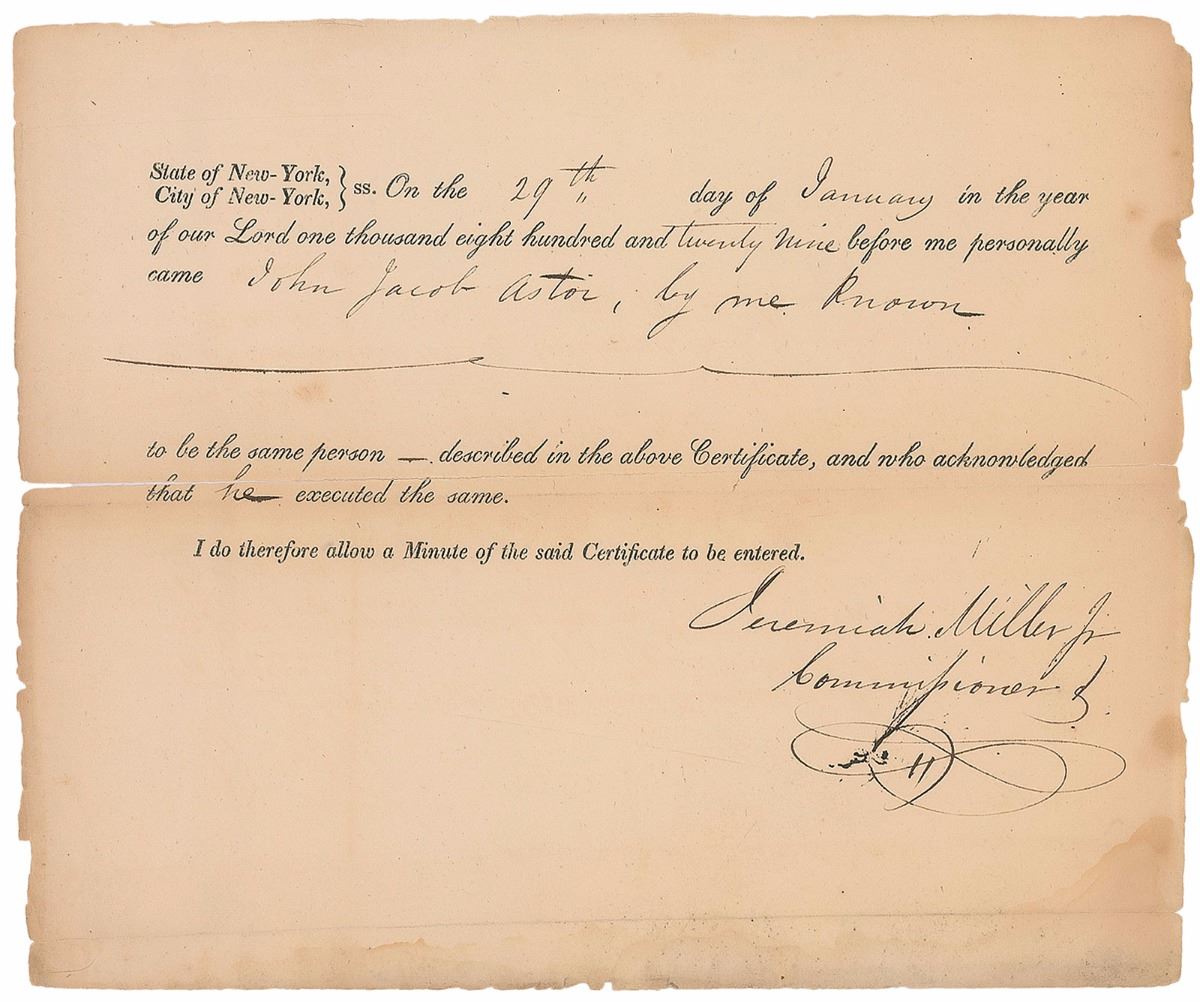 State of New-York,
City of New-York, } ss. On the 29th day of January in the year
of our Lord one thousand eight hundred and twenty nine before me personally
came John Jacob Astor, by me known
to be the same person — described in the above Certificate, and who acknowledged
that he executed the same.
I do therefore allow a Minute of the said Certificate to be entered.
Jeremiah Miller Jr
Commissioner &